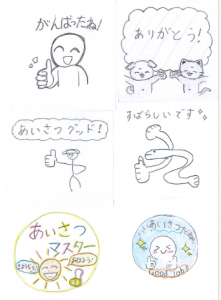 がんばったね!
ありがとう!
あいさつグッド!
すばらしいです
あいさつ
マスター
おはよう!
いいあいさつだね!
Good Job